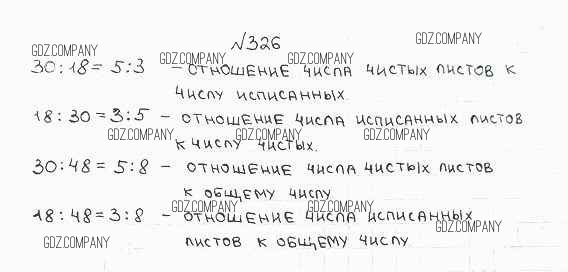 №326
GDZ.COMPANY
GDZ.COMPANY GDZ.COMPANY GDZ.COMPANY
30:18 = 5:3 – отношение числа чистых листов к
числу исписанных.
18:30 = 3:5 – отношение числа исписанных листов
GDZ.COMPANY GDZ.COMPANY GDZ.COMPANY
к числу чистых.
30:48 = 5:8 – отношение числа чистых листов
к общему числу
GDZ.COMPANY GDZ.COMPANY
18:48 = 3:8 – отношение числа исписанных
GDZ.COMPANY
листов к общему числу
GDZ.COMPANY